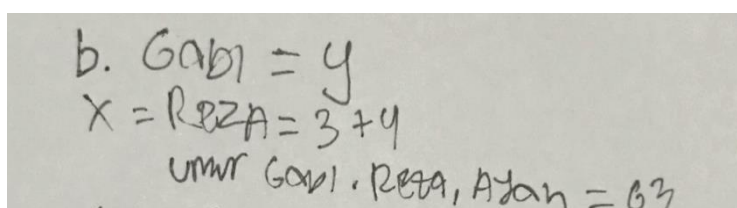 b. Gabi = y
X = REZA = 3 + y
umur Gabi. Reza, Ayah = 63